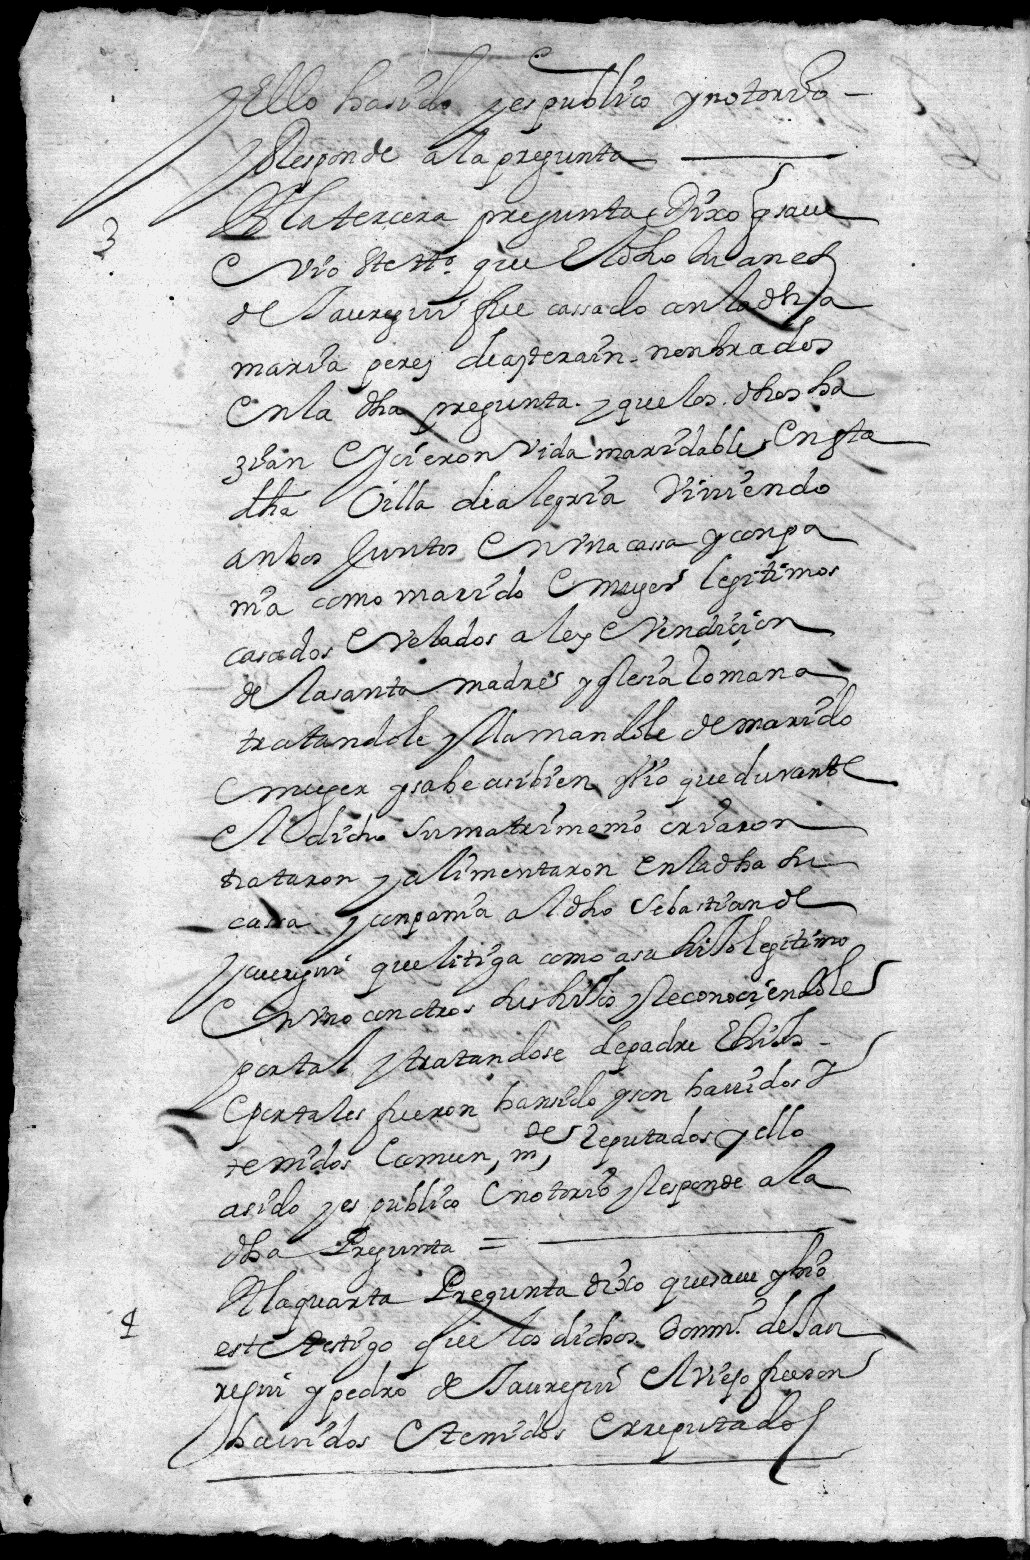 y Ello ha sido y es publico y notorio –
y Responde a la pregunta
3
A la tercera pregunta Dixo q saue
E vio Este tto. que El dho Juanes
de Jauregui fue cassado con la dha
maria peres de azterain. nonbrados
En la dha pregunta. y que los dhos ha
zian E ycieron Vida maridable En esta
dha Villa de alegria Viviendo
anbos Juntos En vna cassa y conpa
nia como marido E muger legitimos
casados E velados a ley E vendicion
de la santa madre yglesia Romana
tratandole y llamandole de marido
E muger y sabe asi bien y bio que durante
El dicho su matrimonio criaron
trataron y alimentaron En la dha su
cassa y conpania al dho Sebastian de
Jauregui que litiga como a su hijo legitimo
En vno con otros sus hijos y Reconociendole
por tal y tratandose de padre E hijo –
E por tales fueron han sido y son hauidos y
tenidos Comun, m, de Reputados y ello
a sido y es publico E notorio y Responde a la
dha Pregunta =
4
A la quarta Pregunta dixo que saue y bio
este testigo que los dichos domin. de Jau
regui y pedro de Jauregui El viejo fueron
hauidos E tenidos E rreputados